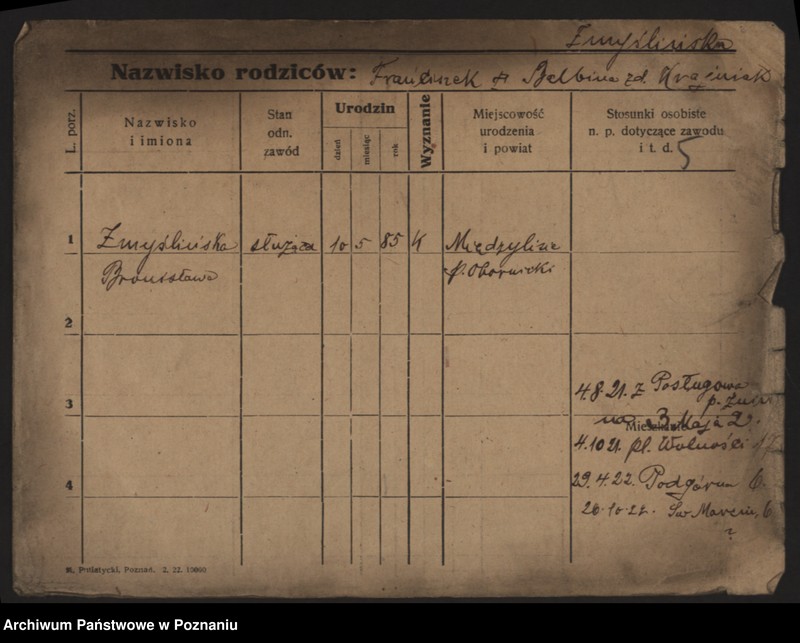 Zmyślińska
Nazwisko rodziców: Franciszek + Balbina zd. Kraśniak
L. porz.
Nazwisko i imiona
Stan odn. zawód
Urodzin
dzień
miesiąc
rok
Wyznanie
Miejscowość urodzenia i powiat
Stosunki osobiste n. p. dotyczące zawodu i t. d.
5
1
Zmyślińska służąca 10 5 85 K
Bronisława
p. Obornicki
2
3
4.8.21. z Posługowa
p. Żnin
na 3 Maja 2.
Mieszkanie
4.10 21. pl. Wolności 17
4
29.4.22. Podgórna 6.
26.10.22. Św Marcin, 6
?
M. Putiatycki, Poznań. 2. 22. 10000
Archiwum Państwowe w Poznaniu